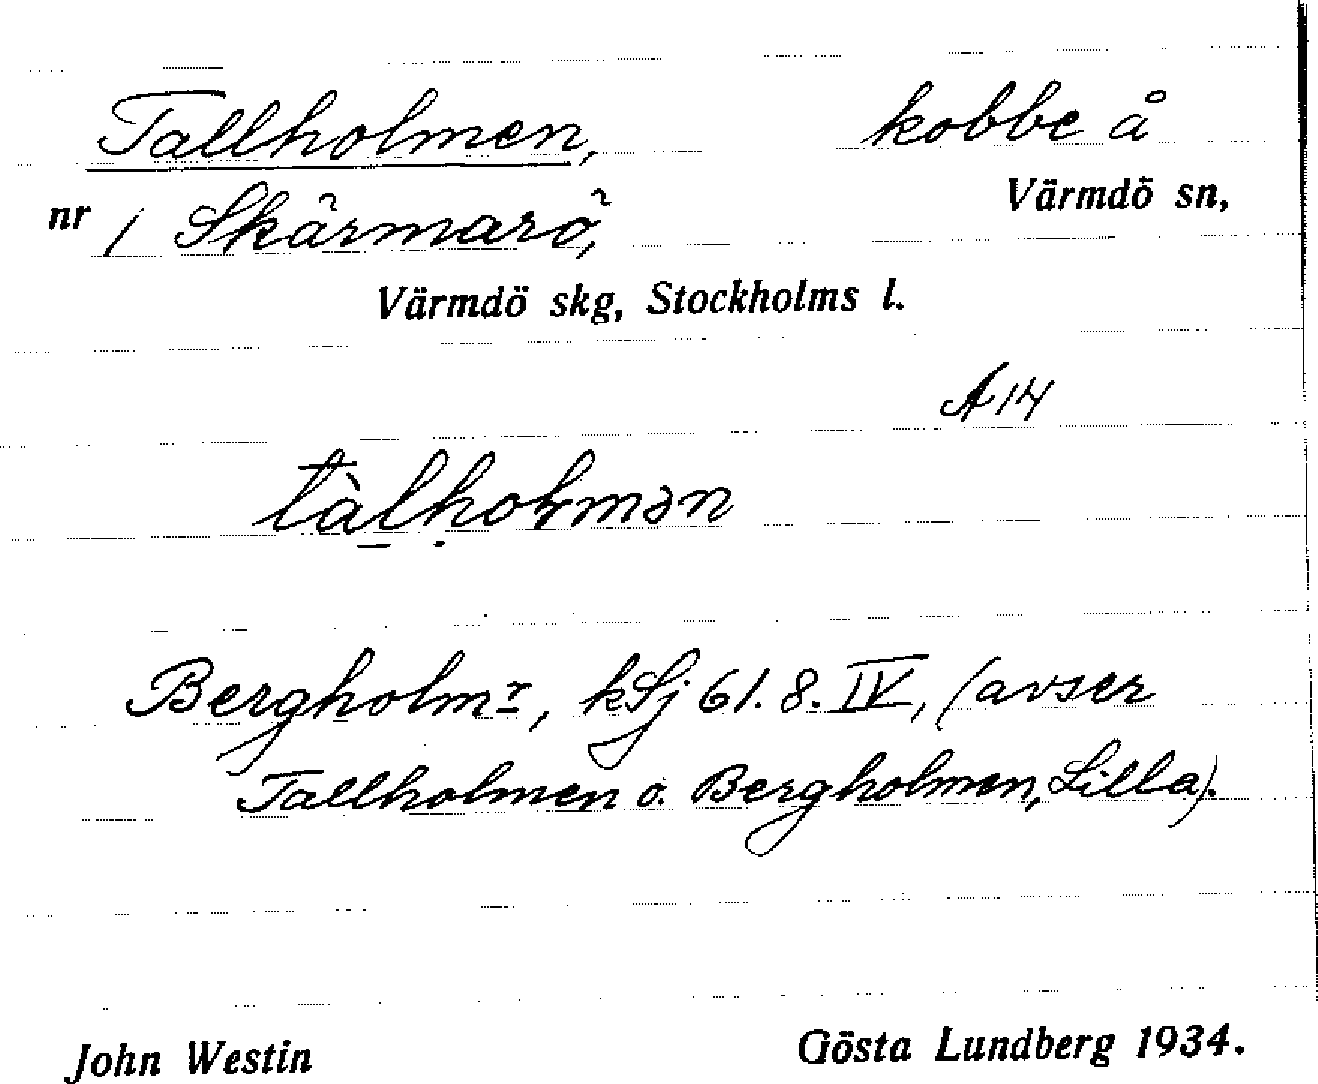 Tallholmen, kobbe å
nr 1 Skärmarö, Värmdö sn,
Värmdö skg, Stockholms l.
A 14
tàlholmən
Bergholmr, kSj 61. 8. IV, (avser
Tallholmen o. Bergholmen, Lilla).
John Westin Gösta Lundberg 1934.